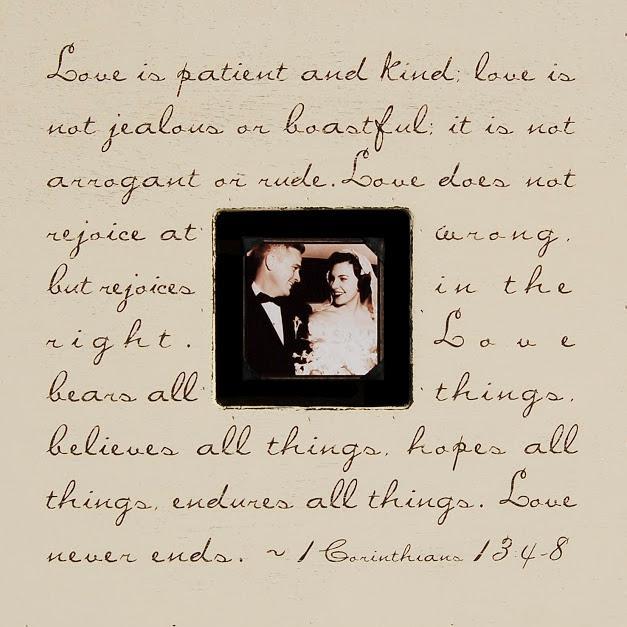 Love is patient and kind; love is
not jealous or boastful; it is not
arrogant or rude. Love does not
rejoice at wrong,
but rejoices in the
right. Love
bears all things,
believes all things, hopes all
things, endures all things. Love
never ends. ~ 1 Corinthians 13:4-8